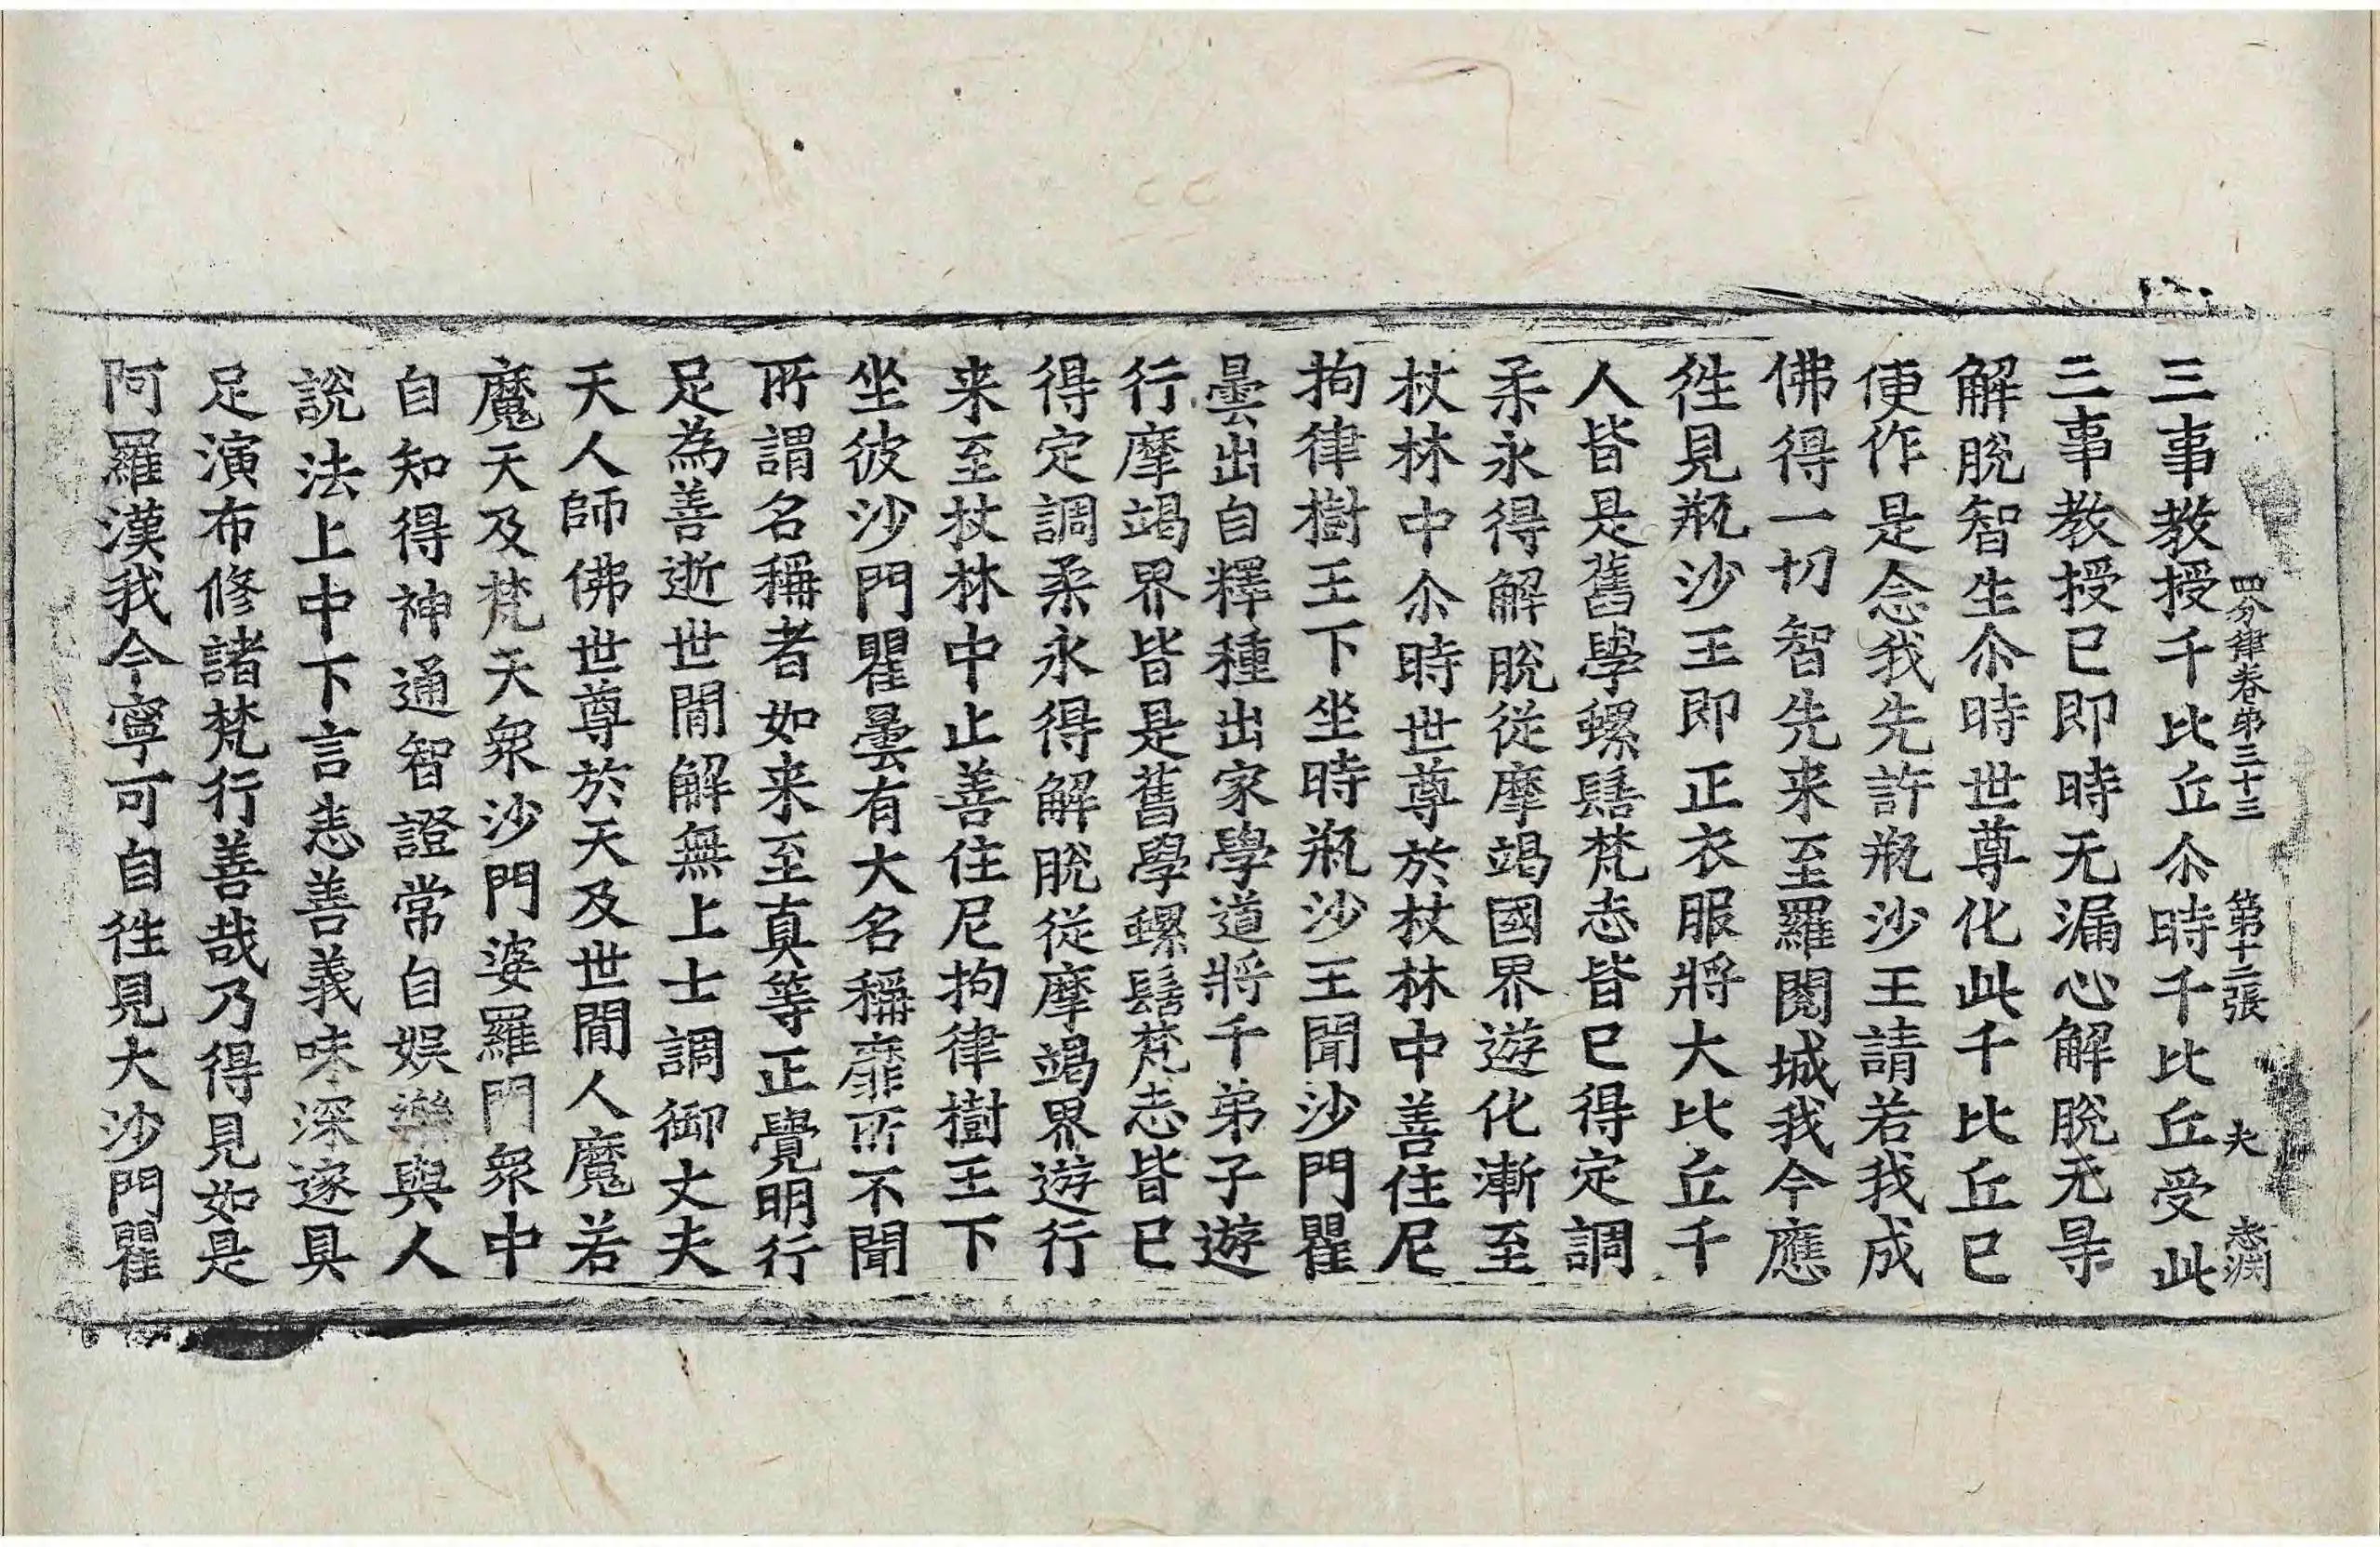 四分律卷苐三十三 第十二張 夫
三事教授千比丘尒時千比丘受此
三事教授已即時无漏心解脫无㝵
解脫智生尒時世尊化此千比丘已
便作是念我先許瓶沙王請若我成
佛得一切智先来至羅閱城我今應
徃見瓶沙王即正衣服將大比丘千
人皆是舊學螺髻梵志皆已得定調
柔永得解脫從摩竭國界遊化漸至
杖林中尒時世尊於杖林中善住尼
拘律樹王下坐時瓶沙王聞沙門瞿
曇出自釋種出家學道將千弟子遊
行摩竭界皆是舊學螺髻梵志皆已
得定調柔永得解脫從摩竭界遊行
来至杖林中止善住尼拘律樹王下
坐彼沙門瞿曇有大名稱靡所不聞
所謂名稱者如来至真等正覺明行
足為善逝世閒解無上士調御丈夫
天人師佛世尊於天及世閒人魔若
魔天及梵天衆沙門婆羅門衆中
自知得神通智證常自娛樂與人
說法上中下言志善義味深邃具
足演布修諸梵行善哉乃得見如是
阿羅漢我今寧可自徃見大沙門瞿